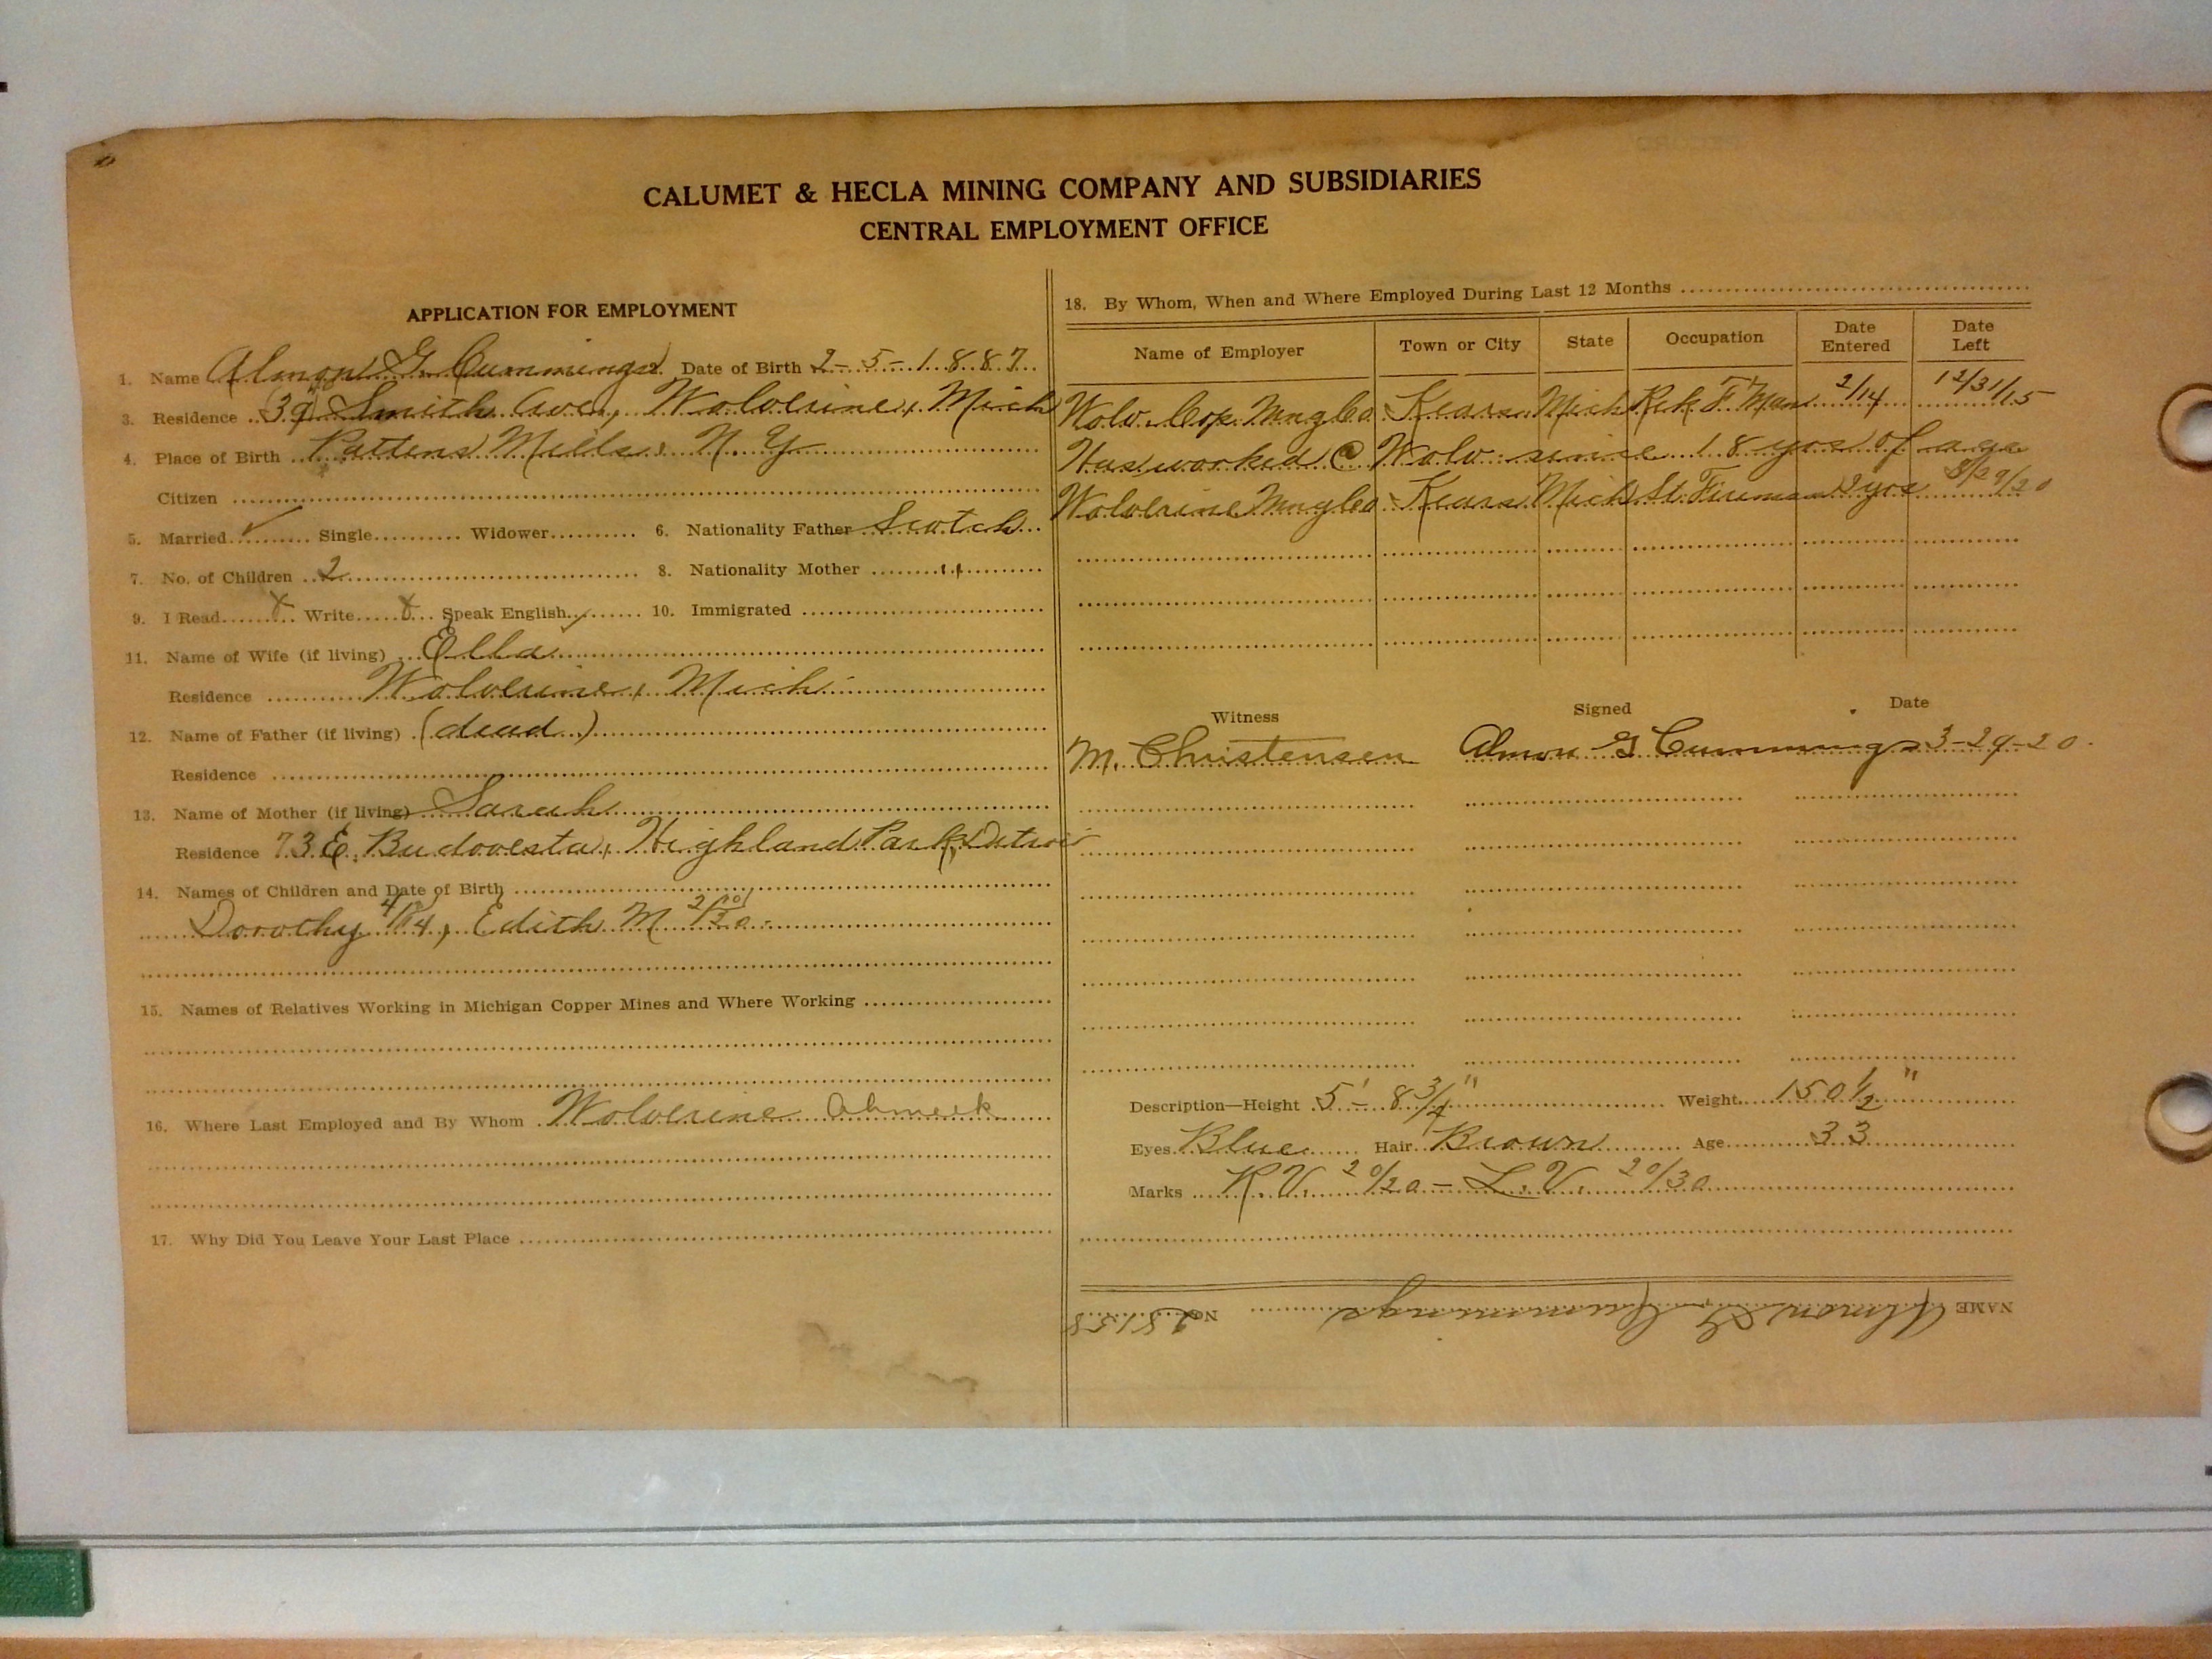 CALUMET & HECLA MINING COMPANY AND SUBSIDIARIES
CENTRAL EMPLOYMENT OFFICE
APPLICATION FOR EMPLOYMENT
1. Name Almon G. Cummings Date of Birth 2-5-1887
3. Residence (39) Smith Ave, Wolverine, Mich
4. Place of Birth Pattens Mills, N.Y
Citizen
5. Married ✓ Single Widower 6. Nationality Father Scotch
7. No. of Children 2 8. Nationality Mother "
9. I Read x Write x Speak English ✓ 10. Immigrated
11. Name of Wife (if living) Ella
Residence Wolverine, Mich
12. Name of Father (if living) (dead)
Residence
13. Name of Mother (if living) Sarah
Residence 73 E. Highland Park,
14. Names of Children and Date of Birth
Dorothy Edith M
15. Names of Relatives Working in Michigan Copper Mines and Where Working
16. Where Last Employed and By Whom Wolverine Ahmeek
17. Why Did You Leave Your Last Place
18. By Whom, When and Where Employed During Last 12 Months
Name of Employer Town or City State Occupation Date Entered Date Left
Wolv. Cop. Mng Co Kears. Mich F'Man 2/14 12/31/15
Has worked @ Wolv since 18 yrs of age
Wolverine Mng Co Kears Mich St. Fireman 2 yrs /29/20
Witness Signed Date
M. Christensen Almon G Cummings 3-29-20
Description—Height 5'-8 3/4" Weight 150 1/2 "
Eyes Blue Hair Brown Age 33
Marks R.V. 20/20 - L.V. 20/30
NAME Almon G. Cummings No. 28158